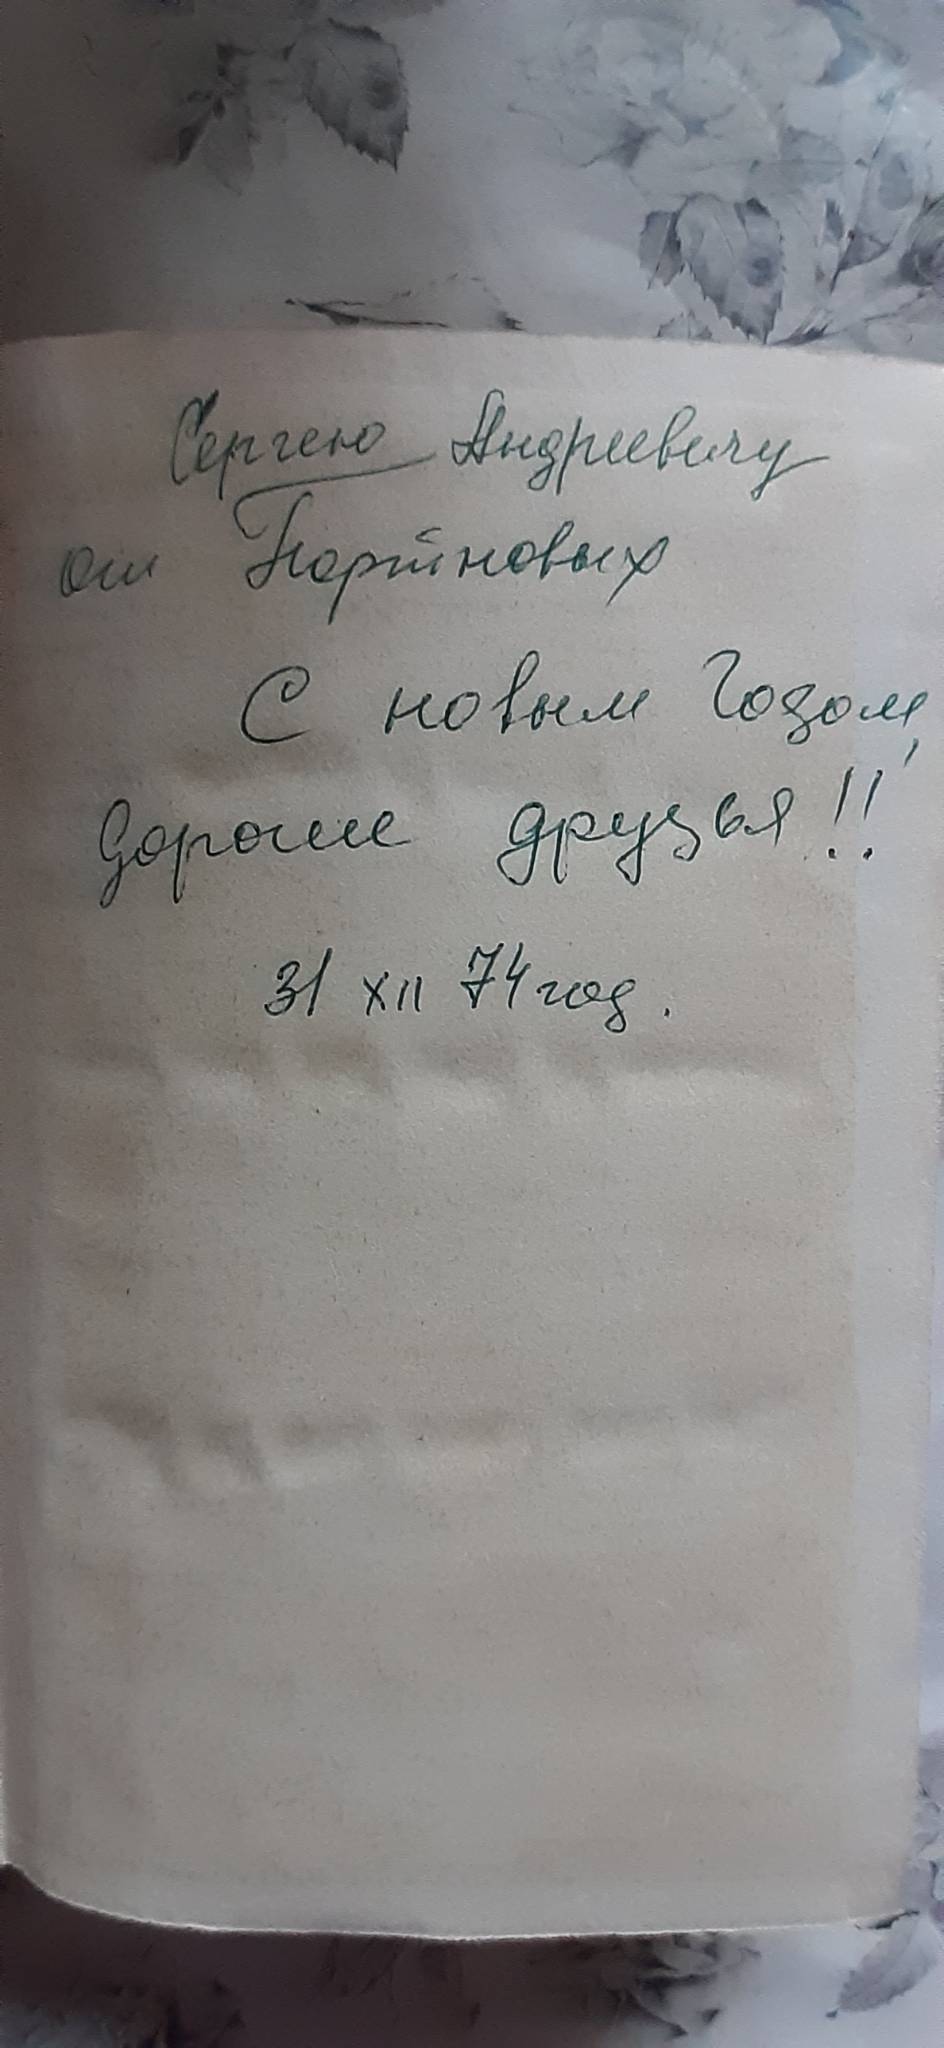 Сергею Андреевичу
от Портновых
С новым Годом,
дорогие друзья!!
31 XII 74 год.